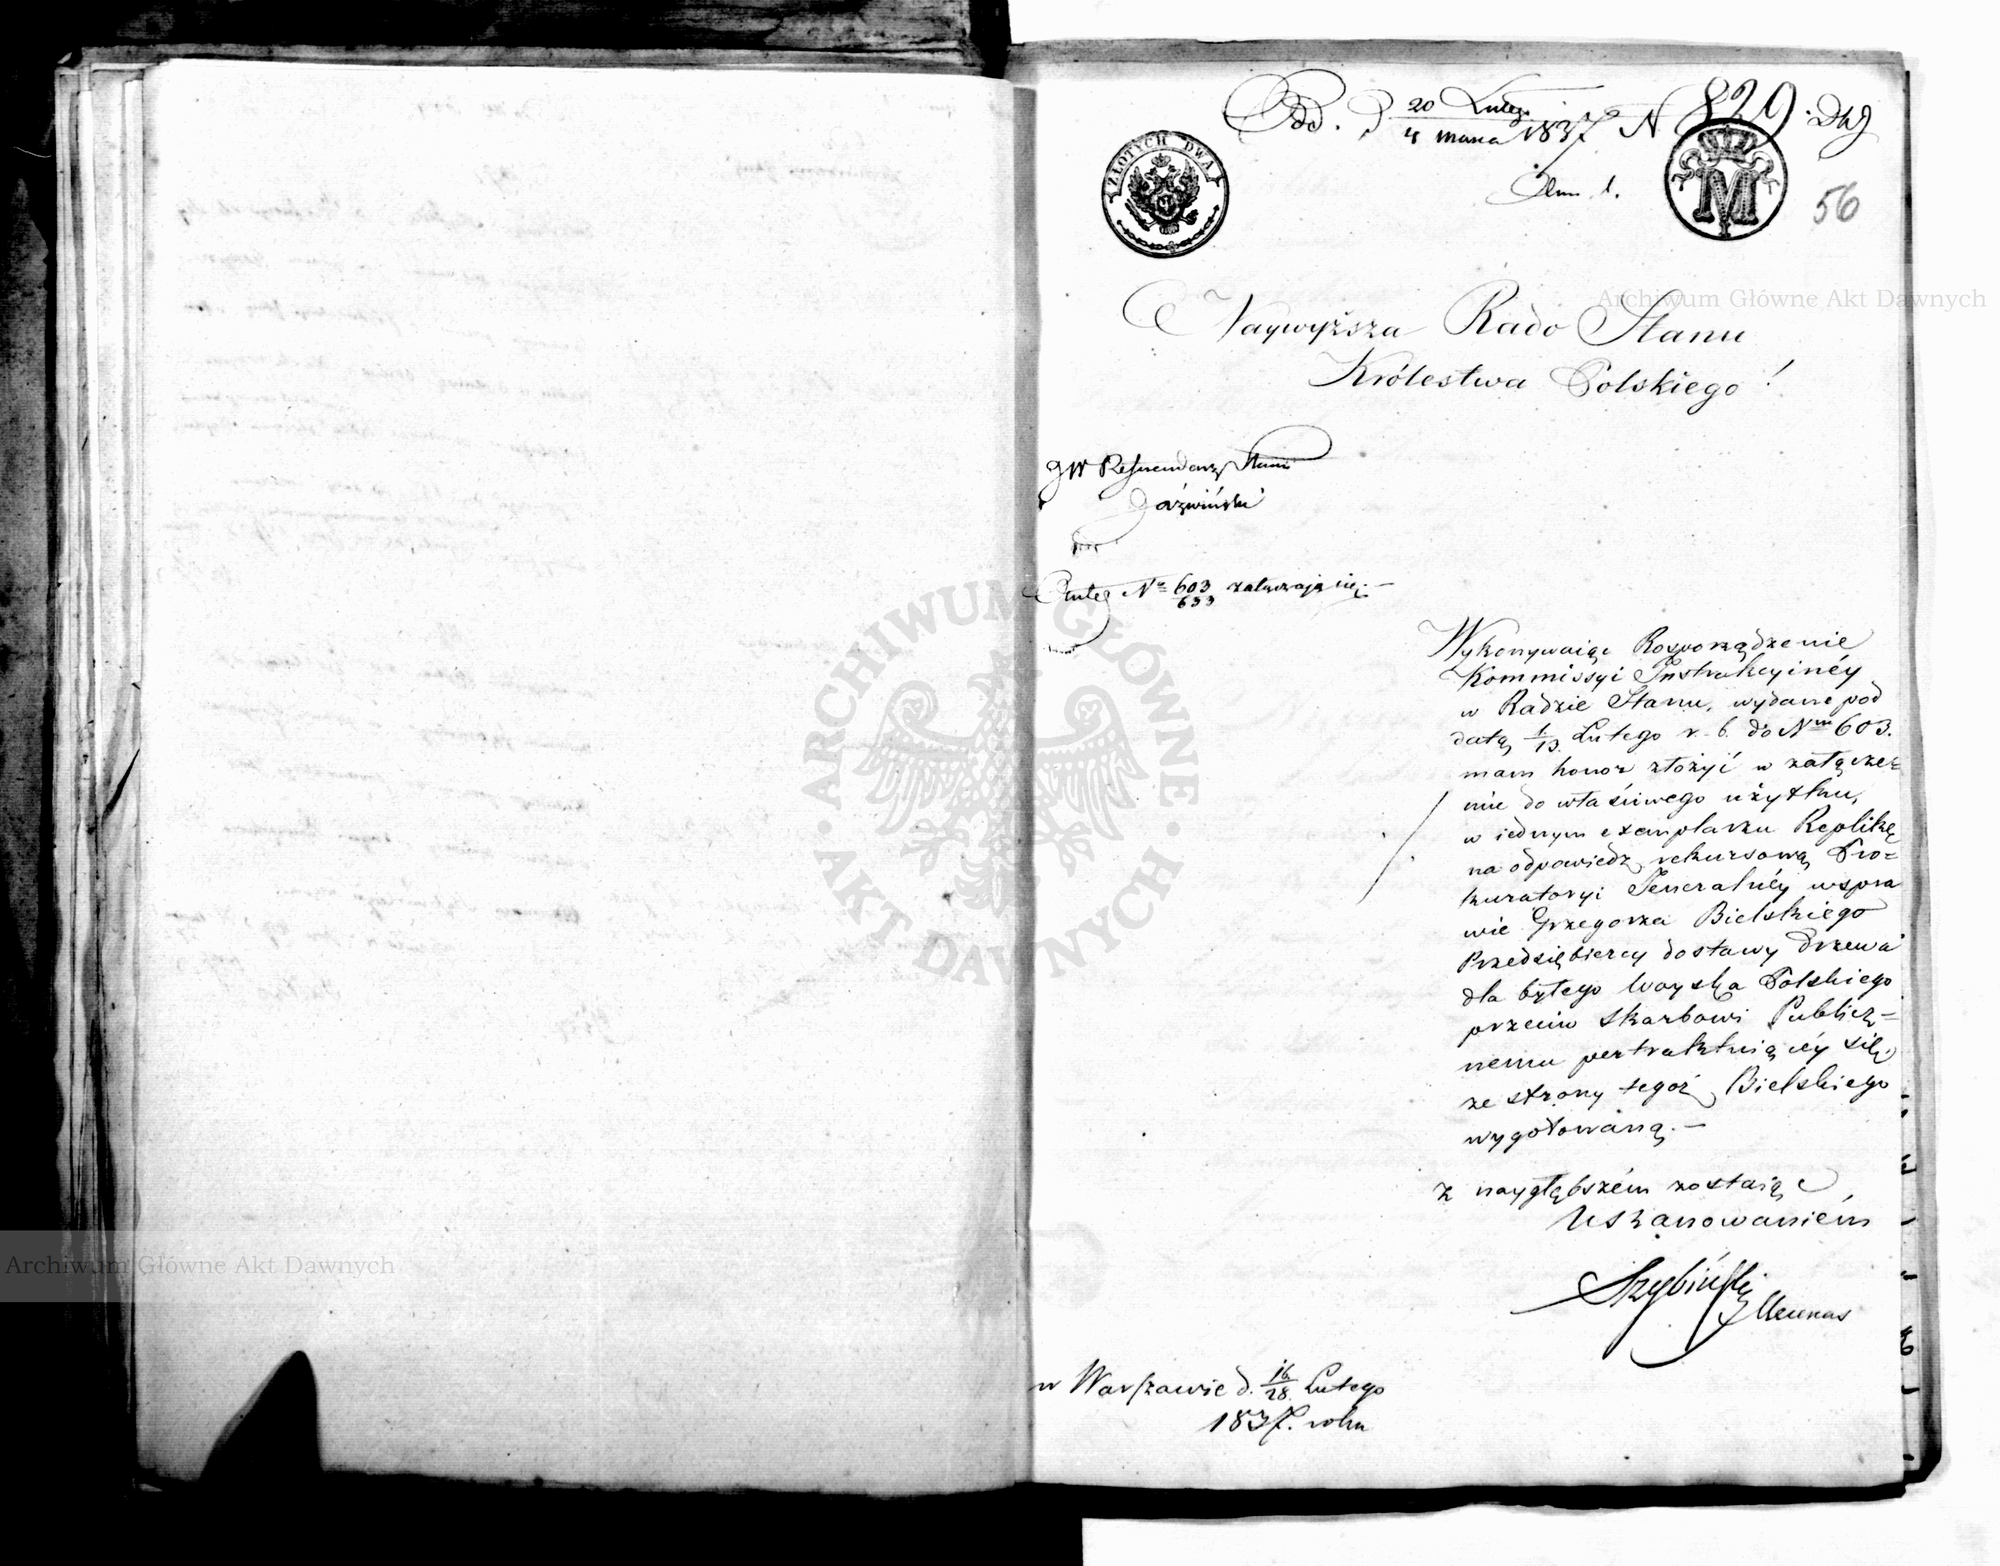 Pod. d. 20 Lutego / 4 Marca 1837 N 829.
56
ZŁOTYCH DWA
M
Naywyższa Rado Stanu
Królestwa Polskiego!
JW Referendarz Stanu
N° 603 / 633 załączają się. —
Wykonywaiąc Rozporządzenie
Kommissyi Instrukcyinéy
w Radzie Stanu, wydane pod
datą 1/13. Lutego r. b. do Nru 603.
mam honor złożyć w załącze=
niu do właściwego użytku,
w iednym exemplarzu Replikę
na odpowiedz rekursową Pro=
kuratoryi Jeneralnéy w spra
wie Grzegorza Bielskiego
Przedsiębiercy dostawy drzewa
dla byłego Woyska Polskiego
przeciw Skarbowi Publicz=
nemu pertraktuiącéy się,
ze strony tegoż Bielskiego
wygotowaną. —
z naygłębszém zostaiąc
Uszanowaniem
w Warszawie d. 16/28. Lutego
1837. roku
Archiwum Główne Akt Dawnych
ARCHIWUM GŁÓWNE AKT DAWNYCH
Archiwum Główne Akt Dawnych